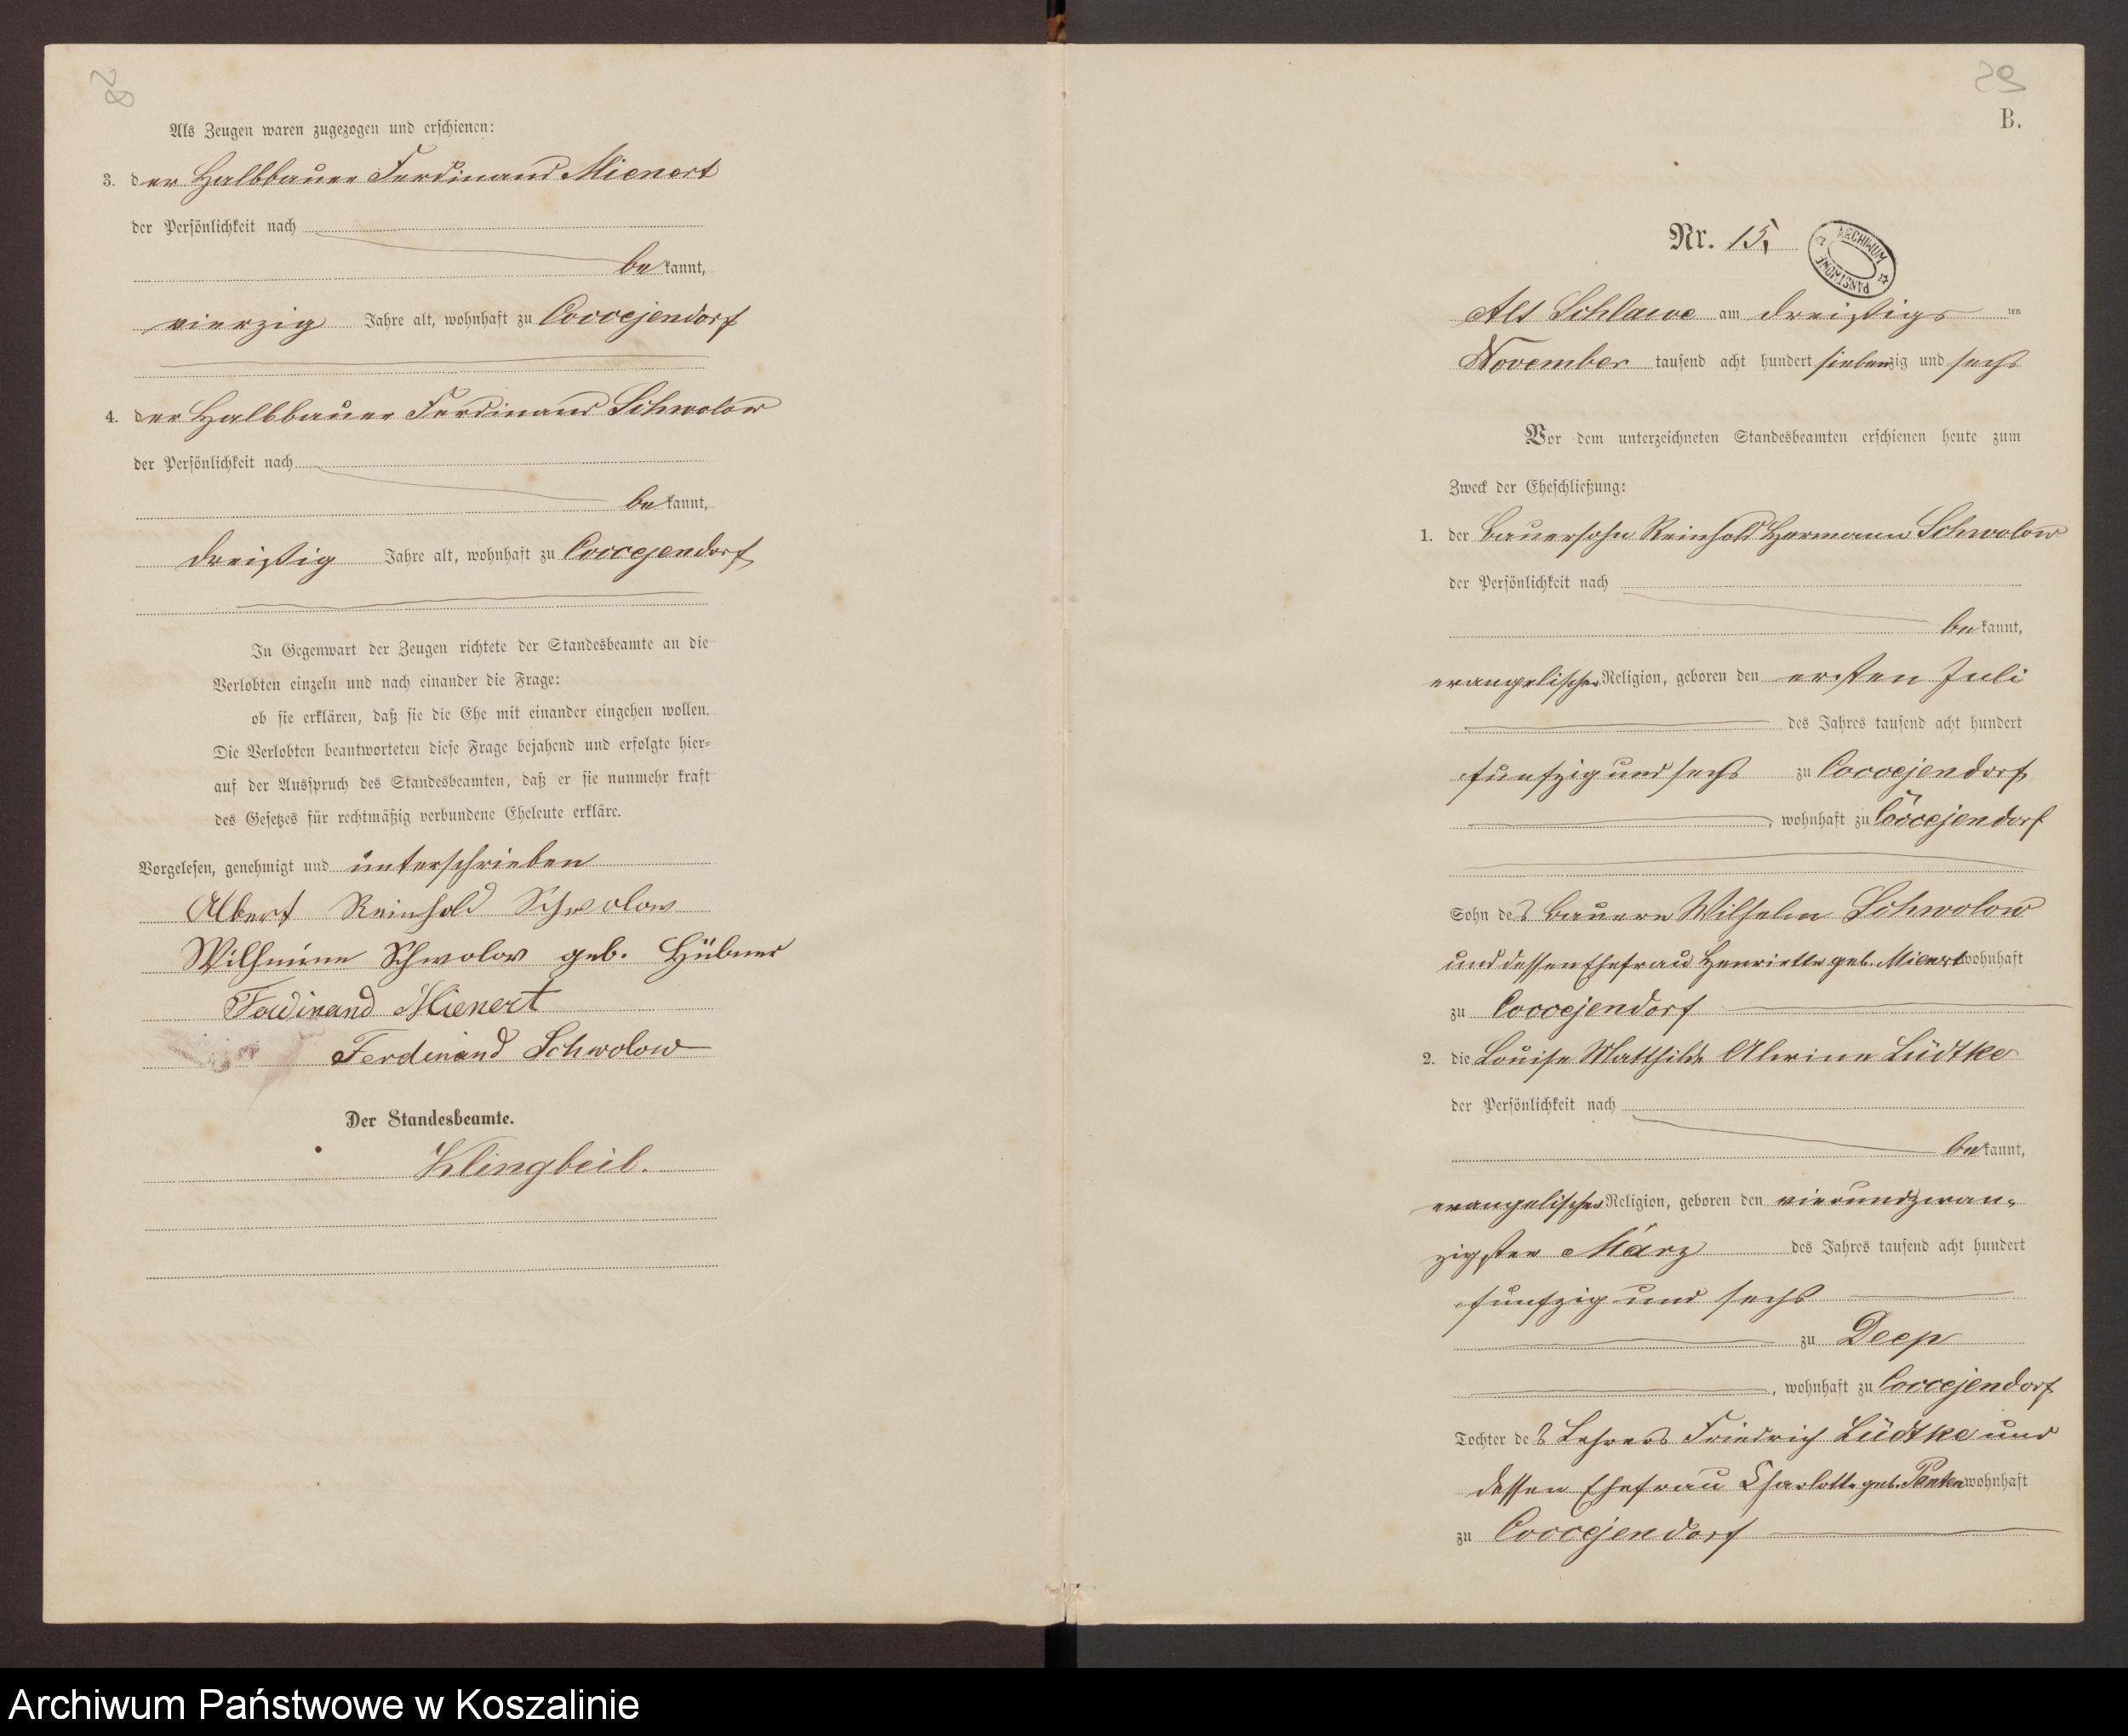 28
Als Zeugen waren zugezogen und erschienen:
3. der Halbbauer Ferdinand Mienert
der Persönlichkeit nach
bekannt,
vierzig Jahre alt, wohnhaft zu Coccejendorf
4. der Halbbauer Ferdinand Schwolow
der Persönlichkeit nach
bekannt,
dreißig Jahre alt, wohnhaft zu Coccejendorf
In Gegenwart der Zeugen richtete der Standesbeamte an die
Verlobten einzeln und nach einander die Frage:
ob sie erklären, daß sie die Ehe mit einander eingehen wollen.
Die Verlobten beantworteten diese Frage bejahend und erfolgte hier-
auf der Ausspruch des Standesbeamten, daß er sie nunmehr kraft
des Gesetzes für rechtmäßig verbundene Eheleute erkläre.
Vorgelesen, genehmigt und unterschrieben
Albert Reinhold Schwolow
Wilhmine Schwolow geb. Hübner
Ferdinand Mienert
Ferdinand Schwolow
Der Standesbeamte.
Klingbeil.
29
B.
Nr. 15,
ARCHIWUM PAŃSTWOWE
Alt Schlawe am dreißigsten
November tausend acht hundert siebenzig und sechs
Vor dem unterzeichneten Standesbeamten erschienen heute zum
Zweck der Eheschließung:
1. der Bauersohn Reinhold Hermann Schwolow
der Persönlichkeit nach
bekannt,
evangelischer Religion, geboren den ersten Juli
des Jahres tausend acht hundert
funfzig und sechs zu Coccejendorf
, wohnhaft zu Coccejendorf
Sohn des Bauern Wilhelm Schwolow
und dessen Ehefrau Henriette geb. Mienert wohnhaft
zu Coccejendorf
2. die Louise Mathilde Alwine Lüdtke
der Persönlichkeit nach
bekannt,
evangelischer Religion, geboren den vierundzwan-
zigsten März des Jahres tausend acht hundert
funfzig und sechs
zu Deep
, wohnhaft zu Coccejendorf
Tochter des Lehrers Friedrich Lüdtke und
dessen Ehefrau Charlotte geb. Panten wohnhaft
zu Coccejendorf
Archiwum Państwowe w Koszalinie